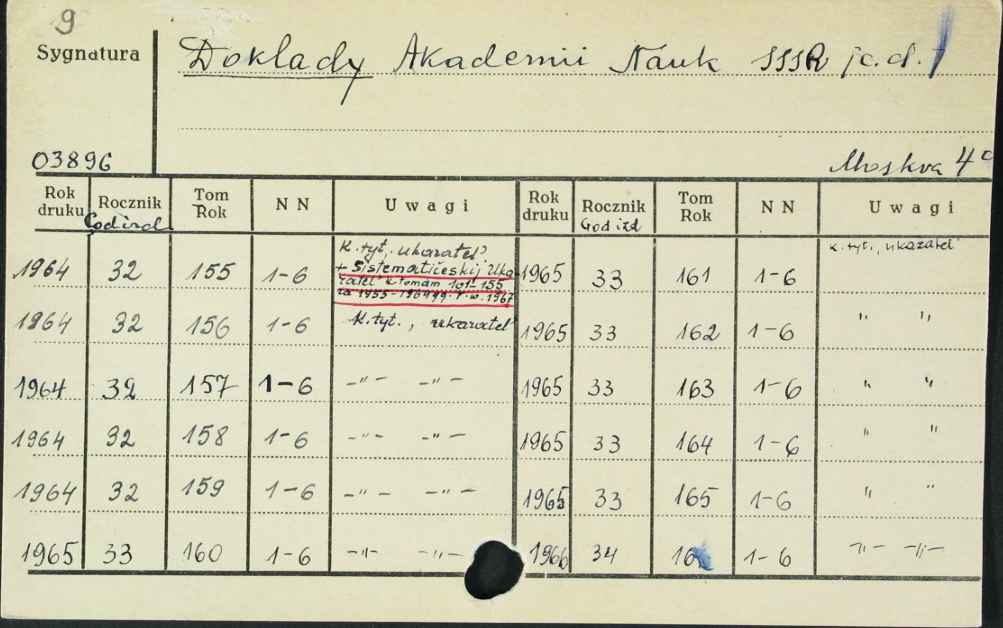 9
Sygnatura Doklady Akademii Nauk SSSR /c.d./
03896 Moskva 4°
Rok druku Rocznik God izd Tom Rok N N Uwagi Rok druku Rocznik God izd Tom Rok N N Uwagi
1964 32 155 1-6 K. tyt., ukazatel' + Sistematičeskij Ukazatel' k tomam 101-155 za 1955-1964 gg. 1965 33 161 1-6 K. tyt., ukazatel'
1964 32 156 1-6 K. tyt., ukazatel' 1965 33 162 1-6 " "
1964 32 157 1-6 -"- -"- 1965 33 163 1-6 " "
1964 32 158 1-6 -"- -"- 1965 33 164 1-6 " "
1964 32 159 1-6 -"- -"- 1965 33 165 1-6 " "
1965 33 160 1-6 -"- -"- 1966 34 1-6 -"- -"-